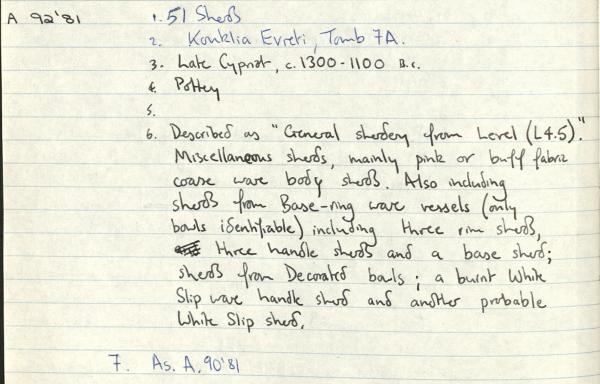 A 92'81
1. 51 Sherds
2. Kouklia Evreti, Tomb 7A.
3. Late Cypriot, c. 1300-1100 B.C.
4. Pottery
5.
6. Described as "General sherdery from Level (L4.5)."
Miscellaneous sherds, mainly pink or buff fabric
coarse ware body sherds. Also including
sherds from Base-ring ware vessels (only
bowls identifiable) including three rim sherds,
three handle sherds and a base sherd;
sherds from Decorated bowls; a burnt White
Slip ware handle sherd and another probable
White Slip sherd.
7. As. A. 90'81